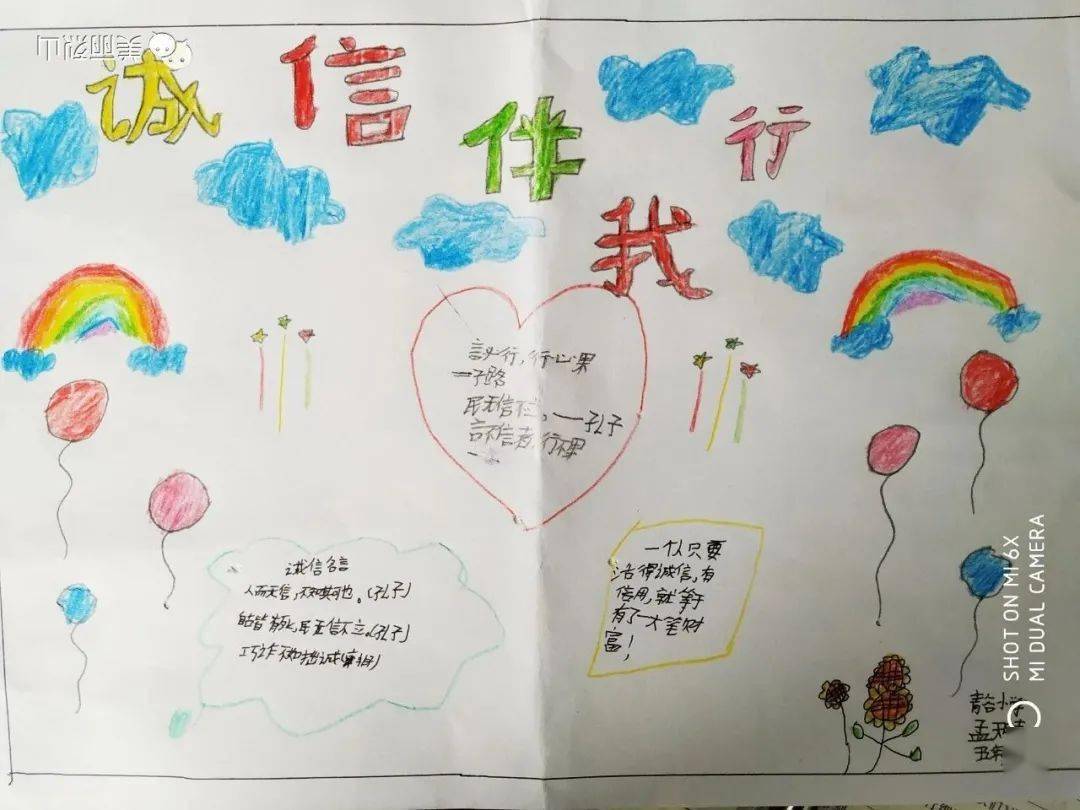 美丽山
诚信伴我行
言必行,行必果
一子路
民无信不立。——孔子
言不信者,行不果
诚信名言
人而无信,不知其可也。(孔子)
皆有死,民无信不立。(孔子)
巧诈不如拙诚
一个人只要
活得诚信,有
信用,就等于
有了一大笔财
富!
小学
孟
五年
SHOT ON MI 6X
MI DUAL CAMERA